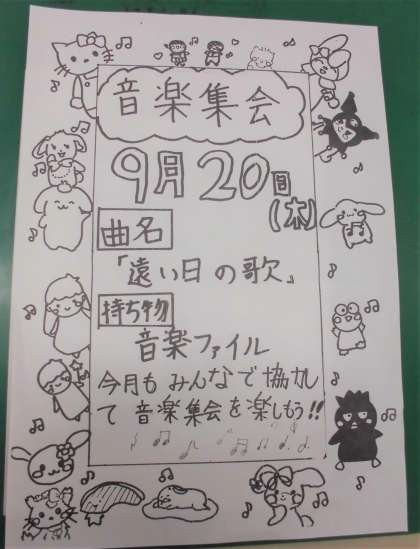 音楽集会
9月20日
(木)
曲名
「遠い日の歌」
持ち物
音楽ファイル
今月もみんなで協力し
て音楽集会を楽しもう!!